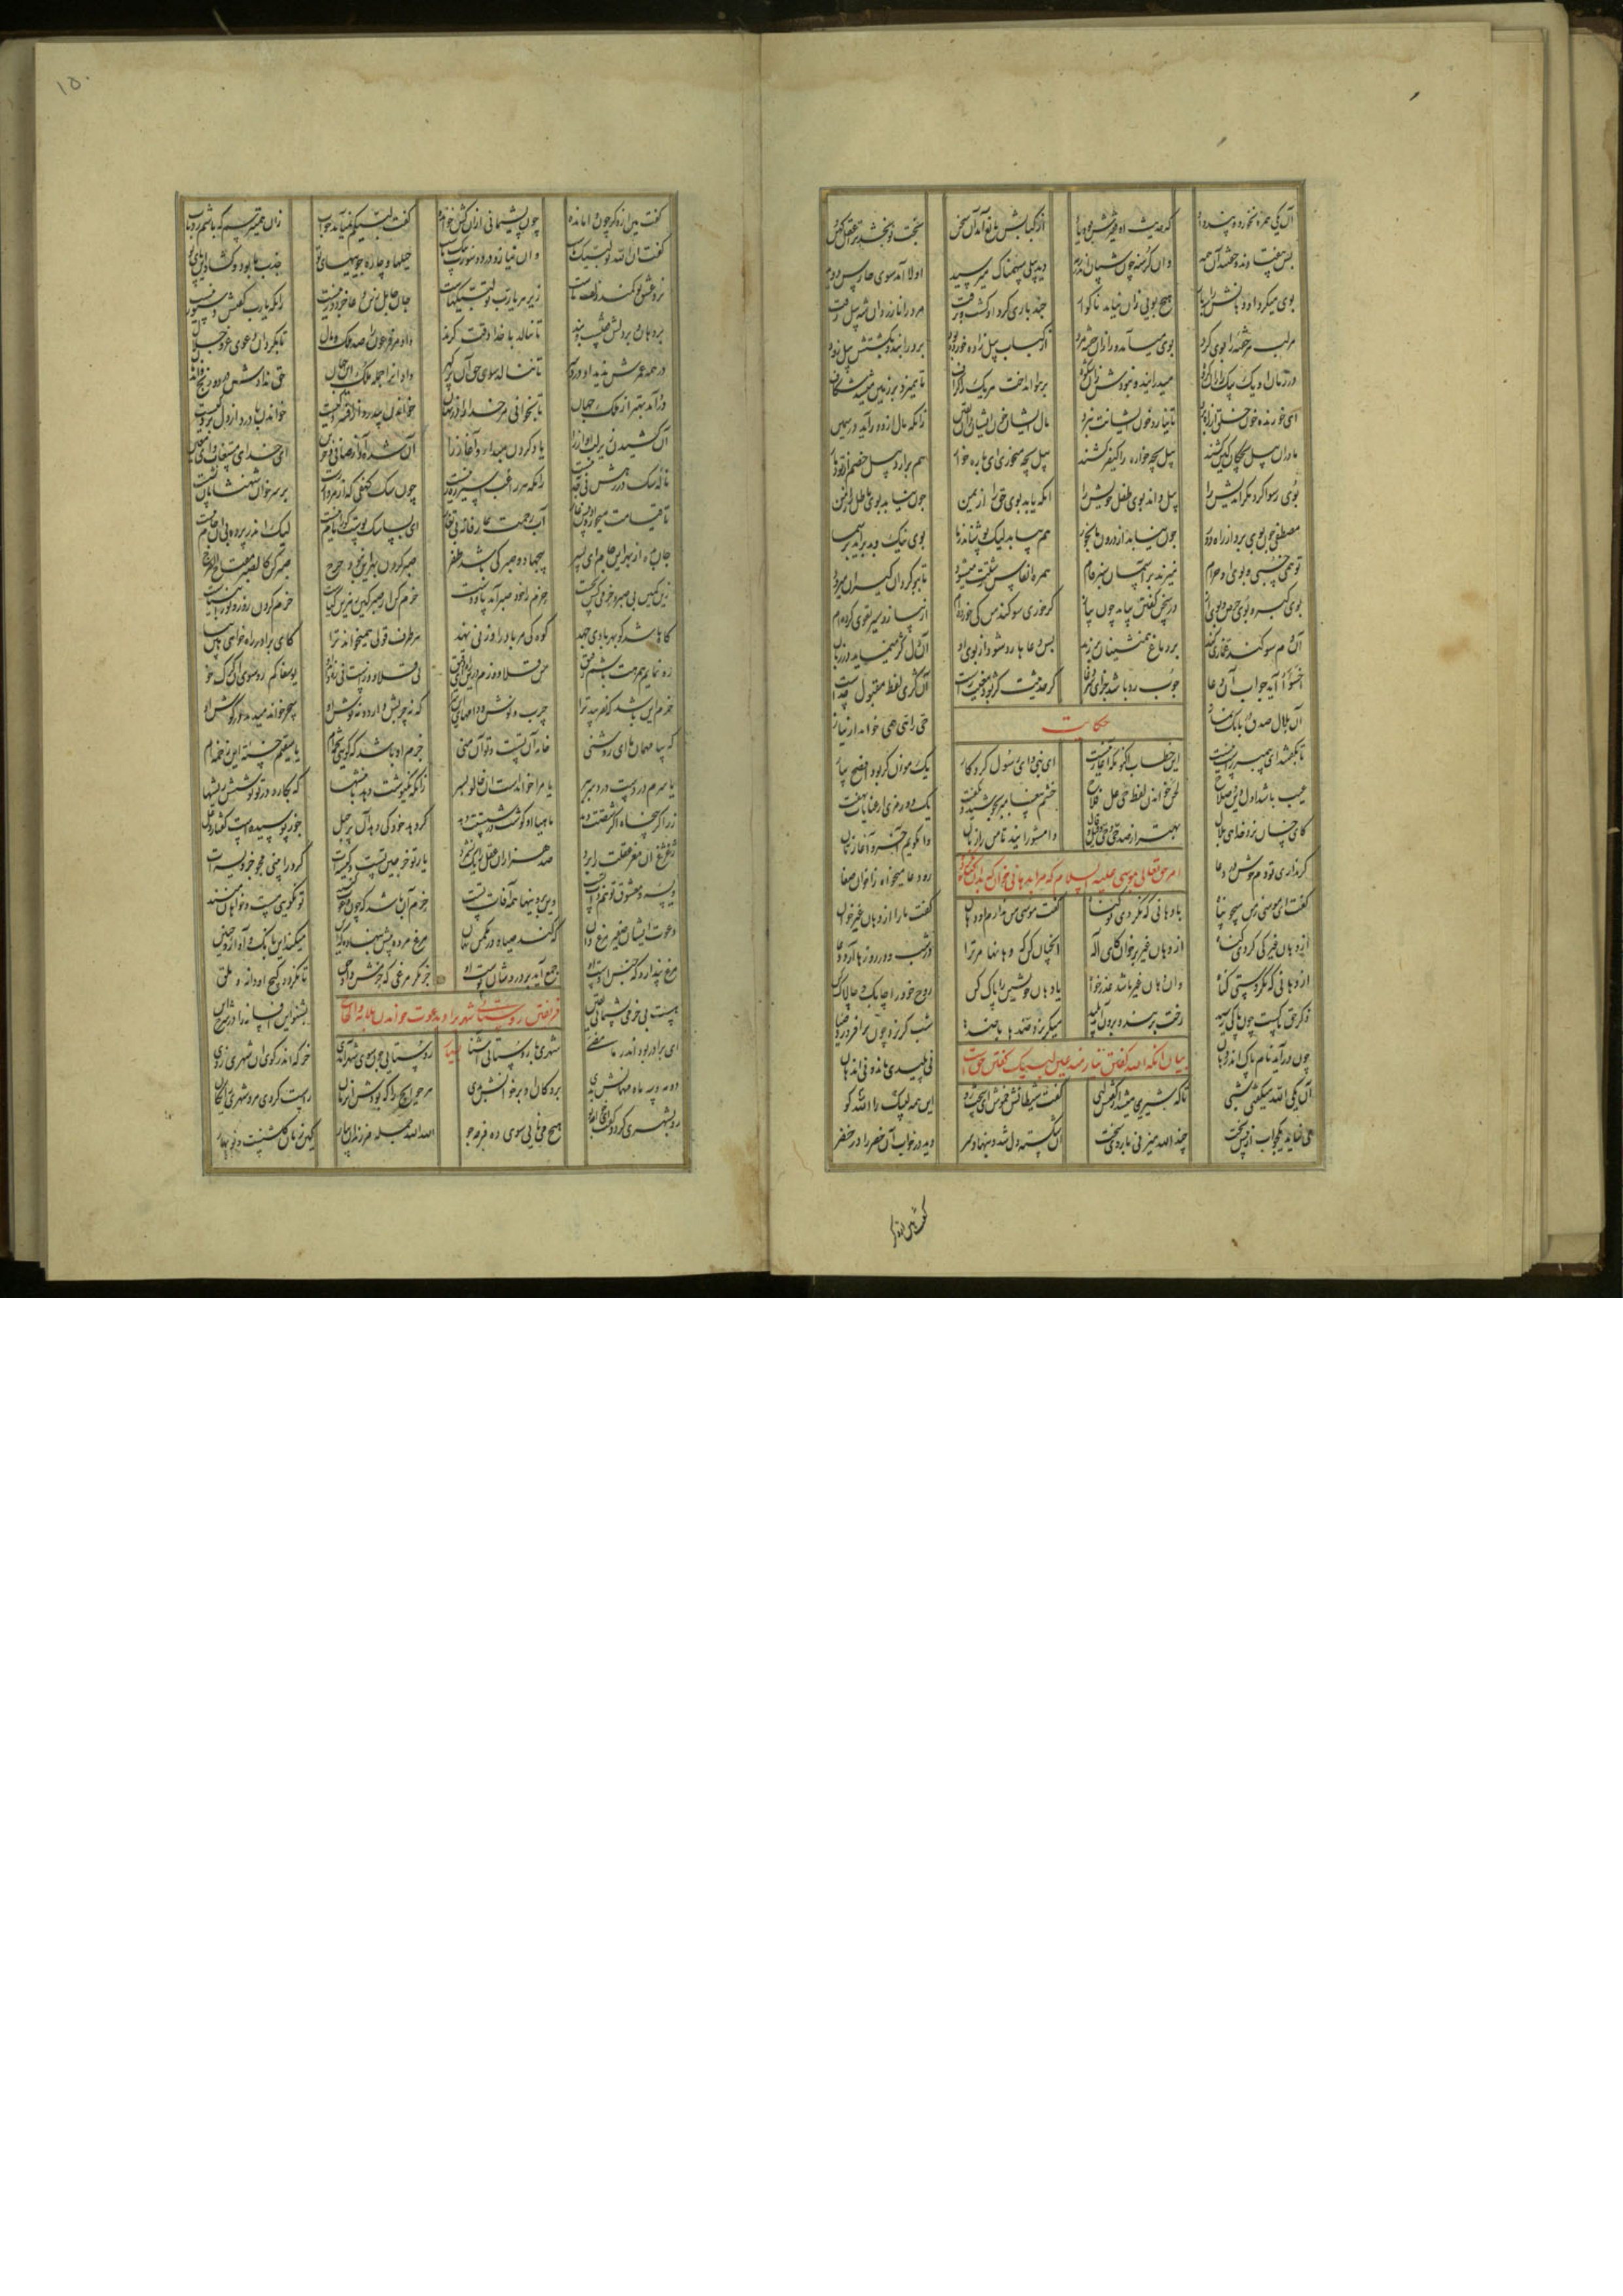 آن یکی همره نخورد و پند داد که حدیث آن فقیرش بود یاد از کبابش مانع آمد آن سخن بخت نو بخشد ترا عقل کهن
پس بیفتادند و خفتند آن همه وان گرسنه چون شبان اندر رمه دید پیلی سهمناک میرسید اولا آمد سوی حارس دوید
بوی میکرد او دهانش را سه بار هیچ بویی زان نیامد ناگوار چند باری گرد او گشت و برفت مر ورا نازرد آن شه پیل زفت
مر لب هر خفته را بوی کرد بوی می آمد ورا زان خفته مرد از کباب پیل زاده خورده بود بر درانید و بکشتش پیل زود
در زمان او یک بیک را زان گروه میدرانید و نبودش زان شکوه بر هوا انداخت هر یک را گزاف تا همیزد بر زمین میشد شکاف
ای خورنده خون خلق از راه برد تا نیارد خون ایشانت نبرد مال ایشان خون ایشان دان یقین زانکه مال از زور آید در یمین
مادر آن پیل بچگان کین کشد پیل بچه خواره را کیفر کشد پیل بچه میخوری ای پاره خوار هم برآرد پیل خصم از تو دمار
بوی رسوا کرد مکر اندیش را پیل داند بوی طفل خویش را آنکه یابد بوی حق را از یمن چون نیابد بوی باطل را ز من
مصطفی چون بوی برد از راه دور چون نیابد از درون ما بخور هم بیابد لیک پوشاند ز ما بوی نیک و بد برآید بر سما
تو همی خسبی و بوی آن حرام میزند بر آسمان سبز فام همره انفاس زشتت میشود تا ببو گیران گردون میرود
بوی کبر و بوی حرص و بوی آز در سخن گفتن بیاید چون پیاز گر خوری سوگند من کی خورده ام از پیاز و سیر تقوی کرده ام
آن دم سوگند غمازی کند بر دماغ همنشینان بر زند پس دعاها رد شود از بوی او آن دل کژ مینماید در زبان
اخسؤا آید جواب آن دعا چوب رد باشد جزای هر دغا گر حدیثت کژ بود معنیت راست آن کژی لفظ مقبول خداست
حکایت
آن بلال صدق در بانگ نماز حی را هی همی خواند از نیاز
تا بگفتند ای پیمبر راست نیست این خطا اکنون که آغاز بناست ای نبی و ای رسول کردگار یک مؤذن کو بود افصح بیار
عیب باشد اول دین و صلاح لحن خواندن لفظ حی علی فلاح خشم پیغامبر بجوشید و بگفت یک دو رمزی از عنایات نهفت
کای خسان نزد خدا هی بلال بهتر از صد حی و خی و قیل و قال وا مشورانید تا من رازتان وا نگویم آخر و آغازتان
امر حق تعالی بموسی علیه السلام که مرا بدهانی خوان که بدان گناه نکرده
گر نداری تو دم خوش در دعا رو دعا میخواه ز اخوان صفا
گفت ای موسی ز من میجو پناه با دهانی که نکردی تو گناه گفت موسی من ندارم آن دهان گفت ما را از دهان غیر خوان
از دهان غیر کی کردی گناه از دهان غیر بر خوان کای اله آنچنان کن که دهانها مر ترا در شب و در روزها آرد دعا
از دهانی که نکردستی گناه وان دهان غیر باشد عذر خواه یا دهان خویشتن را پاک کن روح خود را چابک و چالاک کن
ذکر حق پاکست چون پاکی رسید رخت بر بندد برون آید پلید میگریزد ضدها از ضدها شب گریزد چون بر افروزد ضیا
چون درآید نام پاک اندر دهان نی پلیدی ماند و نی اندهان
بیان آنکه الله گفتن نیازمند عین لبیک گفتن حق است
آن یکی الله میگفتی شبی تا که شیرین میشد از ذکرش لبی گفت شیطانش خموش ای سخت رو این همه الله را لبیک کو
می نیاید یک جواب از پیش تخت چند الله میزنی با روی سخت او شکسته دل شد و بنهاد سر دید در خواب آن خضر را در خضر
گفت هین از ذکر
گفت هین از ذکر چون وا مانده چون پشیمانی از آن کش خوانده گفت لبیکم نمیآید جواب زان همیترسم که باشم رد باب
گفت آن الله تو لبیک ماست وان نیاز و درد و سوزت پیک ماست حیلها و چاره جوییهای تو جذب ما بود و گشاد این پای تو
ترس و عشق تو کمند لطف ماست زیر هر یارب تو لبیکهاست جان جاهل زین دعا جز دور نیست زانکه یارب گفتنش دستور نیست
بر دهان و بر دلش قفلست و بند تا ننالد با خدا وقت گزند داد مر فرعون را صد ملک و مال تا بکرد او دعوی عز و جلال
در همه عمرش ندید او درد سر تا ننالد سوی حق آن بدگهر داد او را جمله ملک این جهان حق ندادش درد و رنج و اندهان
درد آمد بهتر از ملک جهان تا بخوانی مر خدا را در نهان خواندن بی درد از افسردگیست خواندن با درد از دل بردگیست
آن کشیدن زیر لب آواز را یاد کردن مبدا و آغاز را آن شده آواز صافی و حزین ای خدای مستغاث و ای معین
ناله سگ در رهش بی جذبه نیست زانکه هر راغب اسیر ره زنیست چون سگ کهفی که از مردار رست بر سر خوان شهنشاهان نشست
تا قیامت میخورد او پیش غار آب رحمت عارفانه بی تغار ای بسا سگ پوست کورا نام نیست لیک اندر پرده بی آن جام نیست
جان بده از بهر این جام ای پسر بی جهاد و صبر کی باشد ظفر صبر کردن بهر این نبود حرج صبر کن کالصبر مفتاح الفرج
زین کمین بی صبر و حزمی کس نجست حزم را خود صبر آمد پا و دست حزم کن از خورد کین زهرین گیاست حزم کردن زور و نور انبیاست
کاه باشد کو بهر بادی جهد کوه کی مر باد را وزنی نهد هر طرف غولی همیخواند ترا کای برادر راه خواهی هین بیا
ره نمایم همرهت باشم رفیق من قلاووزم درین راه دقیق نی قلاووزست و نی ره داند او یوسفا کم رو سوی آن گرگ خو
حزم این باشد که نفریبد ترا چرب و نوش و دامهای این سرا که نه چربش دارد و نه نوش او سحر خواند میدمد در گوش او
که بیا مهمان ما ای روشنی خانه آن تست و تو آن منی حزم آن باشد که گویی تخمه ام یا سقیمم خسته این دخمه ام
یا سرم دردست درد سر ببر یا مرا خواندست آن خالو پسر زانکه یک نوشت دهد با نیشها که بکارد در تو نوشش ریشها
زر اگر پنجاه اگر شصتت دهد ماهیا او گوشت در شستت دهد گر دهد خود کی دهد آن پر حیل جوز پوسیده است گفتار دغل
ژغژغ آن مغز عقلت را برد صد هزاران عقل را یک نشمرد یار تو خرجین تست و کیسه ات گر تو رامینی مجو جز ویسه ات
ویسه و معشوق تو هم ذات تست وین برونیها همه آفات تست حزم آن باشد که چون دعوت کنند تو نگویی مست و خواهان منند
دعوت ایشان صفیر مرغ دان که کند صیاد در مکمن نهان مرغ مرده پیش بنهاده که این میکند این بانگ و آواز و حنین
مرغ پندارد که جنس اوست او جمع آید بر دردشان پوست او جز مگر مرغی که حزمش داد حق تا نگردد گیج آن دانه و ملق
فریفتن روستائی شهری را و بدعوت خواندن بلابه و الحاح
هست بی حزمی پشیمانی یقین بشنو این افسانه را در شرح این
ای برادر بود اندر ما مضی شهریی با روستایی آشنا روستایی چون سوی شهر آمدی خرگه اندر کوی آن شهری زدی
دو مه و سه ماه مهمانش بدی بر دکان او و بر خوانش بدی هر حوایج را که بودش آن زمان راست کردی مرد شهری رایگان
رو بشهری کرد و گفت ای خواجه تو هیچ می نایی سوی ده فرجه جو الله الله جمله فرزندان بیار کین زمان گلشنست و نوبهار